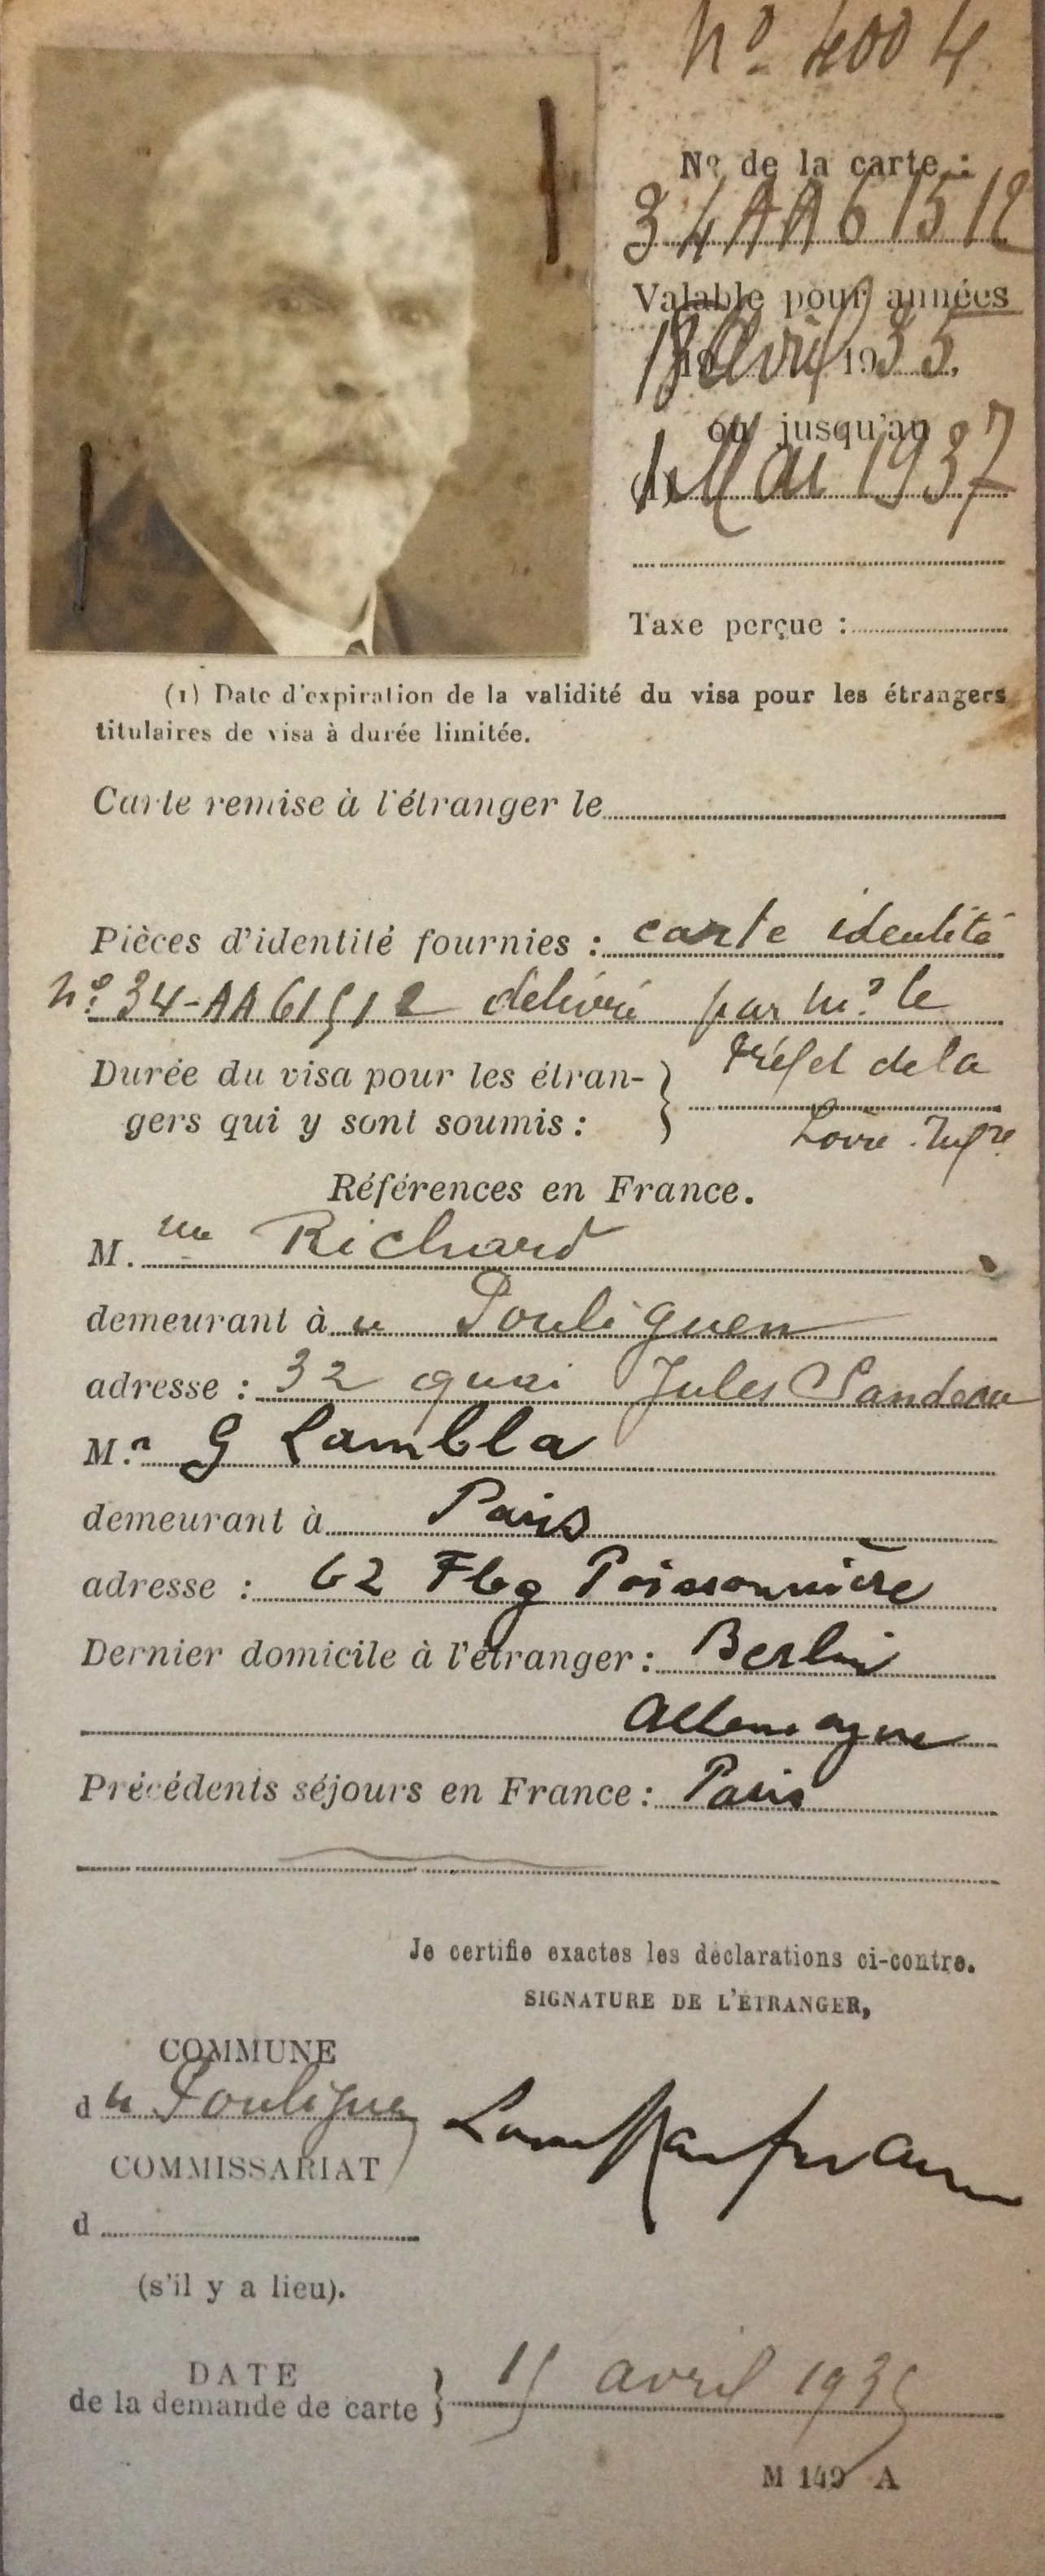 No 4004
No de la carte :
34AA61512
Valable pour années
18 Avril 1935.
ou jusqu'au
1 Mai 1937
Taxe perçue :
(1) Date d'expiration de la validité du visa pour les étrangers
titulaires de visa à durée limitée.
Carte remise à l'étranger le
Pièces d'identité fournies : carte identité
No. 34-AA 61512 délivré par Mr le
Préfet de la
Durée du visa pour les étran-
gers qui y sont soumis :
Loire Infre
Références en France.
M. me Richard
demeurant à u Pouliguen
adresse : 32 quai Jules Sandeau
M. r G Lambla
demeurant à Paris
adresse : 62 Fbg Poissonnière
Dernier domicile à l'étranger : Berlin
Allemagne
Précédents séjours en France : Paris
Je certifie exactes les déclarations ci-contre.
SIGNATURE DE L'ÉTRANGER,
COMMUNE
du Pouliguen
COMMISSARIAT
d
(s'il y a lieu).
DATE
de la demande de carte } 15 avril 1935
M 149 A